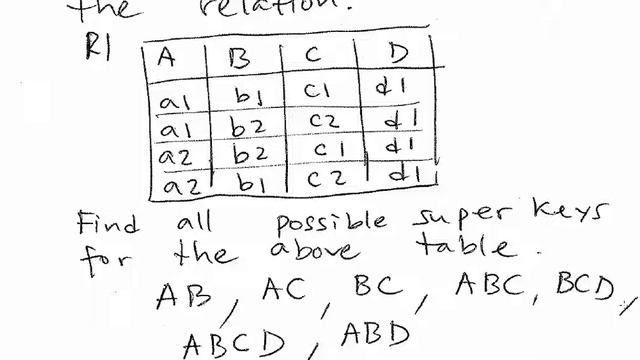 the relation.
R1
A B C D
a1 b1 c1 d1
a1 b2 c2 d1
a2 b2 c1 d1
a2 b1 c2 d1
Find all possible super keys
for the above table.
AB, AC, BC, ABC, BCD,
ABCD, ABD